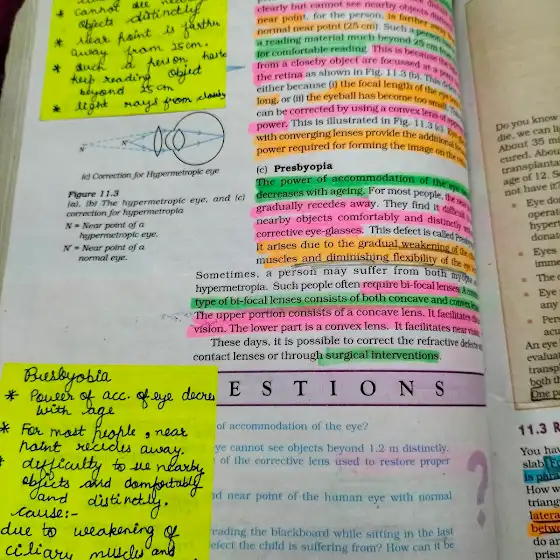 cannot see near
objects distinctly
* near point is farther
away from 25cm.
* such a person has to
keep reading object
beyond 25 cm
* light rays from closeby
clearly but cannot see nearby objects
near point, for the person, is farther
normal near point (25 cm). Such a person
a reading material much beyond 25 cm from
for comfortable reading. This is because the
from a closeby object are focussed at a point
the retina as shown in Fig. 11.3 (b). This defect
either because (i) the focal length of the eye
long, or (ii) the eyeball has become too small.
can be corrected by using a convex lens of
power. This is illustrated in Fig. 11.3 (c). Eye
with converging lenses provide the additional
power required for forming the image on the
N'
N
(c) Correction for Hypermetropic eye
Figure 11.3
(a), (b) The hypermetropic eye, and (c)
correction for hypermetropia
N = Near point of a
hypermetropic eye.
N' = Near point of a
normal eye.
(c) Presbyopia
The power of accommodation of the eye
decreases with ageing. For most people, the near
gradually recedes away. They find it difficult
nearby objects comfortably and distinctly
corrective eye-glasses. This defect is called
It arises due to the gradual weakening of the
muscles and diminishing flexibility of the eye
Sometimes, a person may suffer from both
hypermetropia. Such people often require bi-focal lenses.
type of bi-focal lenses consists of both concave and convex
The upper portion consists of a concave lens. It facilitates
vision. The lower part is a convex lens. It facilitates near
These days, it is possible to correct the refractive defects
contact lenses or through surgical interventions.
ESTIONS
of accommodation of the eye?
eye cannot see objects beyond 1.2 m distinctly.
of the corrective lens used to restore proper
nd near point of the human eye with normal
reading the blackboard while sitting in the last
efect the child is suffering from? How can it be
?
Presbyobia
* Power of acc. of eye decres
with age
* For most people, near
point recides away.
* difficulty to see nearby
objects and comfortably
and distinctly.
cause:-
due to weakening of
ciliary muscle and
Do you know
die, we can
About 35 mi
cured. About
transplant
age of 12. S
not have
Eye do
operat
hypert
dona
Eyes
imme
The
Eye
any
Per
acu
An eye
evalua
transp
both
One p
11.3 R
You hav
slab
is para
How w
triang
latera
betw
do ar
prisr